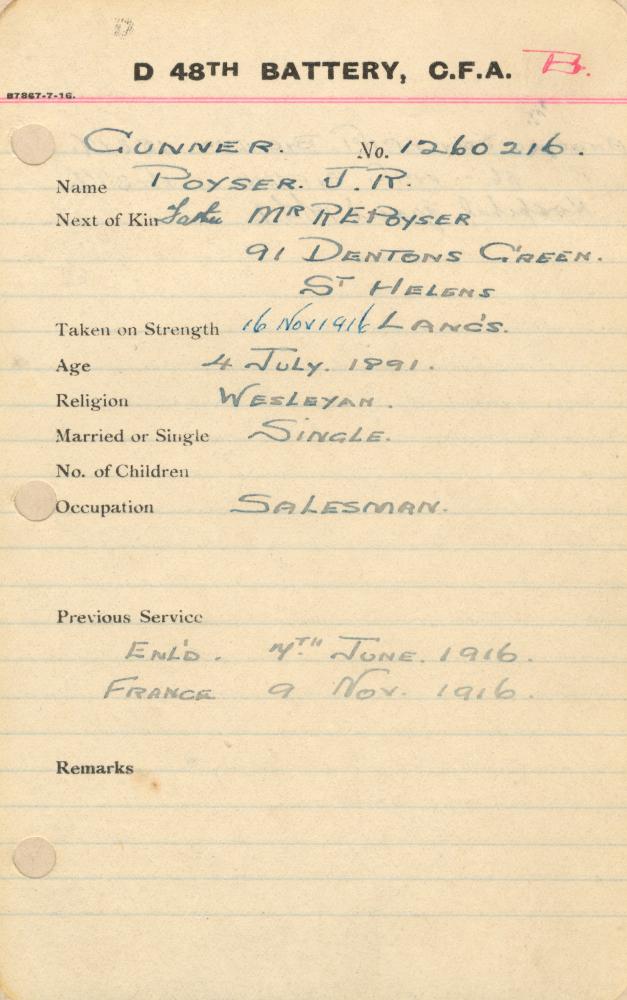 D 48TH BATTERY, C.F.A. B.
B7867-7-16.
GUNNER. No. 1260216.
Name POYSER. J. R.
Next of Kin Father MR R E POYSER
91 DENTONS GREEN.
ST HELENS
Taken on Strength 16 Nov 1916 LANCS.
Age 4 JULY. 1891.
Religion WESLEYAN.
Married or Single SINGLE.
No. of Children
Occupation SALESMAN.
Previous Service
ENL'D. 7TH JUNE. 1916.
FRANCE 9 NOV. 1916.
Remarks